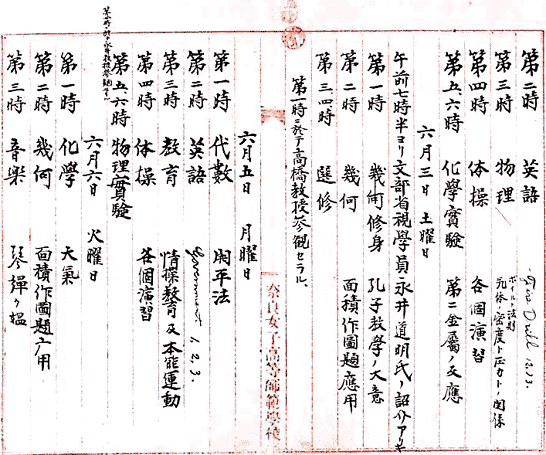 第二時 英語 Fire Drill 12.13.
第三時 物理 ボイル法則 気体ノ密度ト圧力トノ関係
第四時 体操 各個演習
第五、六時 化學實驗 第二金屬ノ反應
六月三日 土曜日
午前七時半ヨリ文部省視學員永井道明氏ノ紹介アリ
第一時 修身 孔子教學ノ大意
第二時 幾何 面積作圖題應用
第三、四時 選修
第一時ニ於テ高橋教授参観セラル、
奈良女子高等師範學校
六月五日 月曜日
第一時 代數 開平法
第二時 英語 Government 1. 2. 3.
第三時 教育 情操教育及本能運動
第四時 体操 各個演習
第五、六時 物理實驗
六月六日 火曜日
第一時 化學 大氣
第二時 幾何 面積作圖題應用
第三時 音楽